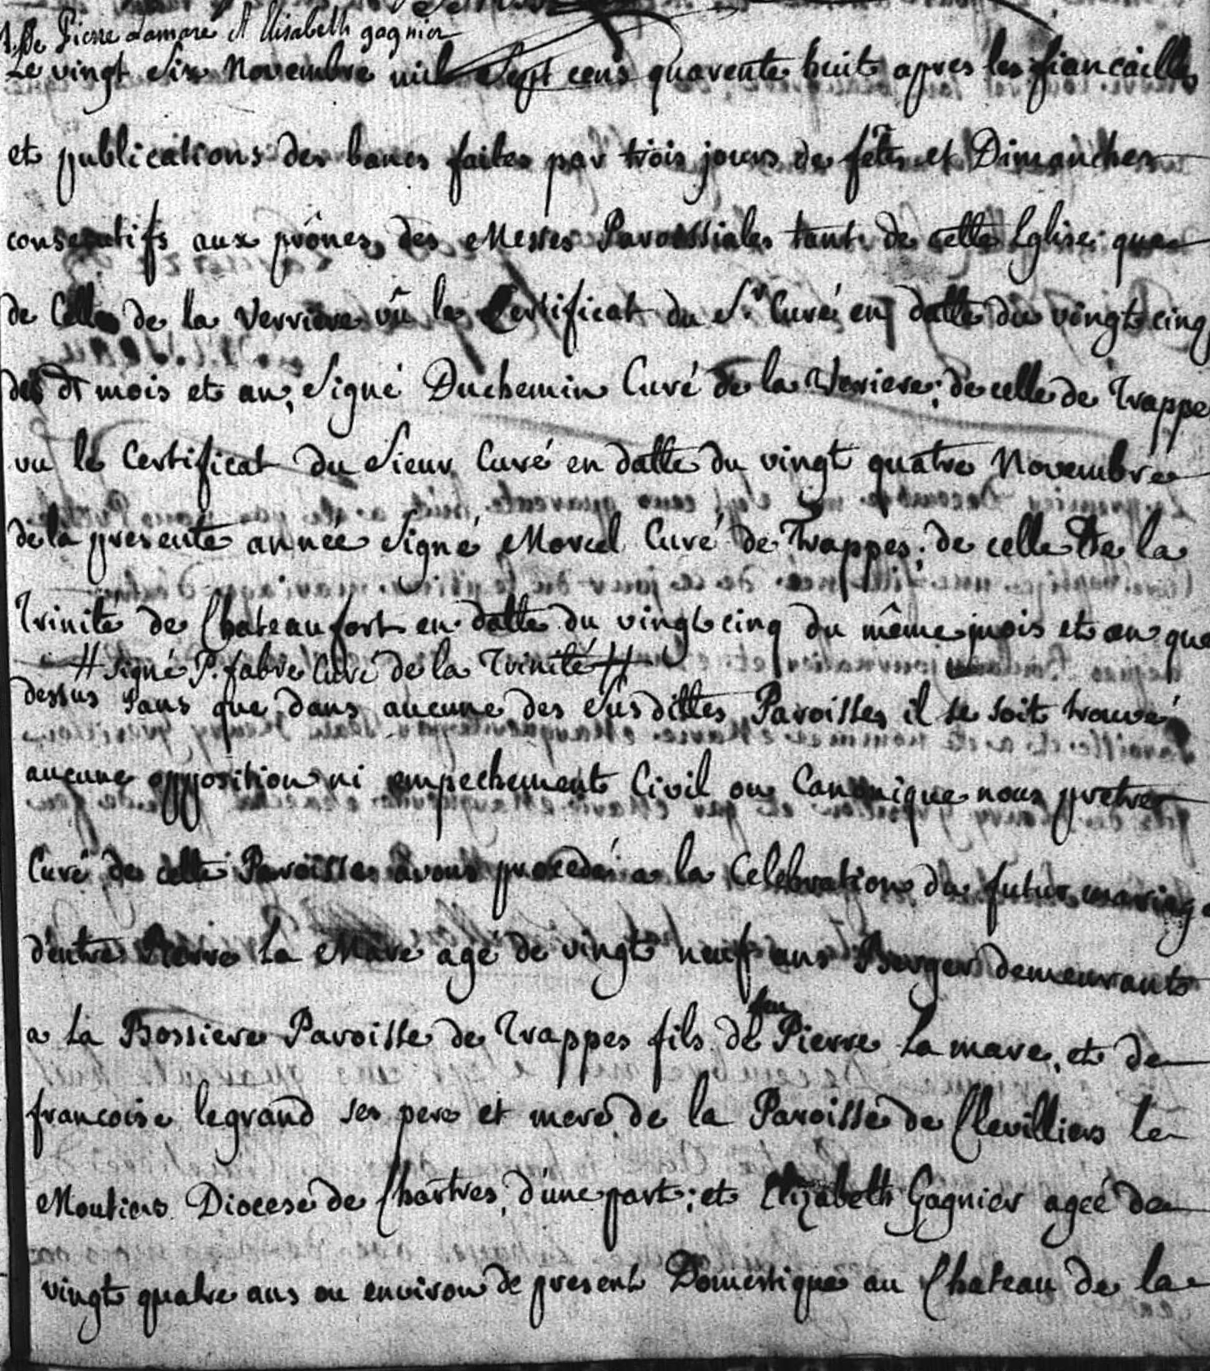 De Pierre Lamare et Elisabeth gagnier
Le vingt Six Novembre mil Sept cens quarente huit apres les fiancailles
et publications des bancs faites par trois jours de fêtes et Dimanches
consecutifs aux prônes des Messes Paroissiales tant de cette Eglise que
de Celle de la Verriere vû le Certificat du Sr. Curé en datte du vingt cinq
des dt mois et an, Signé Duchemin Curé de la Veriere; de celle de Trappe
vu le Certificat du Sieur Curé en datte du vingt quatre Novembre
de la presente année Signé Morcel Curé de Trappes; de celle de la
Trinite de Chateaufort en datte du vingt cinq du même mois et an que
# signé P. fabre Curé de la Trinité #
dessus sans que dans aucune des Susdittes Paroisses il se soit trouvé
aucune opposition ni empechement Civil ou Canonique nous pretre
Curé de cette Paroisse avons procedé a la Celebration du futur mariage
d'entre Pierre La Mare agé de vingt neuf ans Berger demeurant
a La Bossiere Paroisse de Trappes fils de feu Pierre La mare, et de
francoise legrand ses pere et mere de la Paroisse de Clevilliers le
Moutiers Diocese de Chartres, d'une part; et Elizabeth Gagnier agée de
vingt quatre ans ou environ de present Domestique au Chateau de la